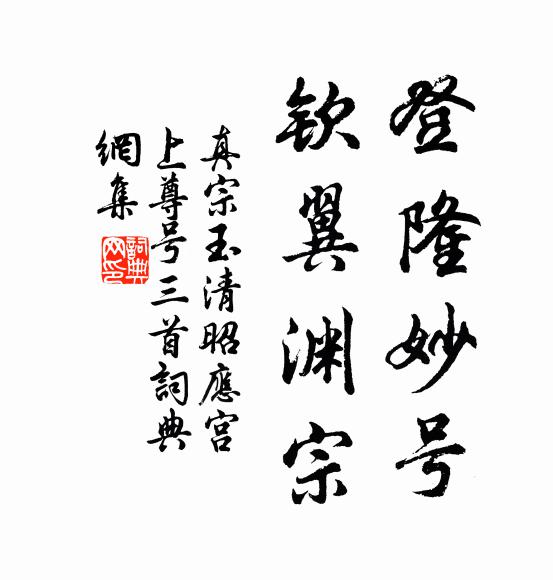 登隆妙号
钦翼渊宗
真宗玉清昭應宫
上尊号三首詞典
網集
詞典网印